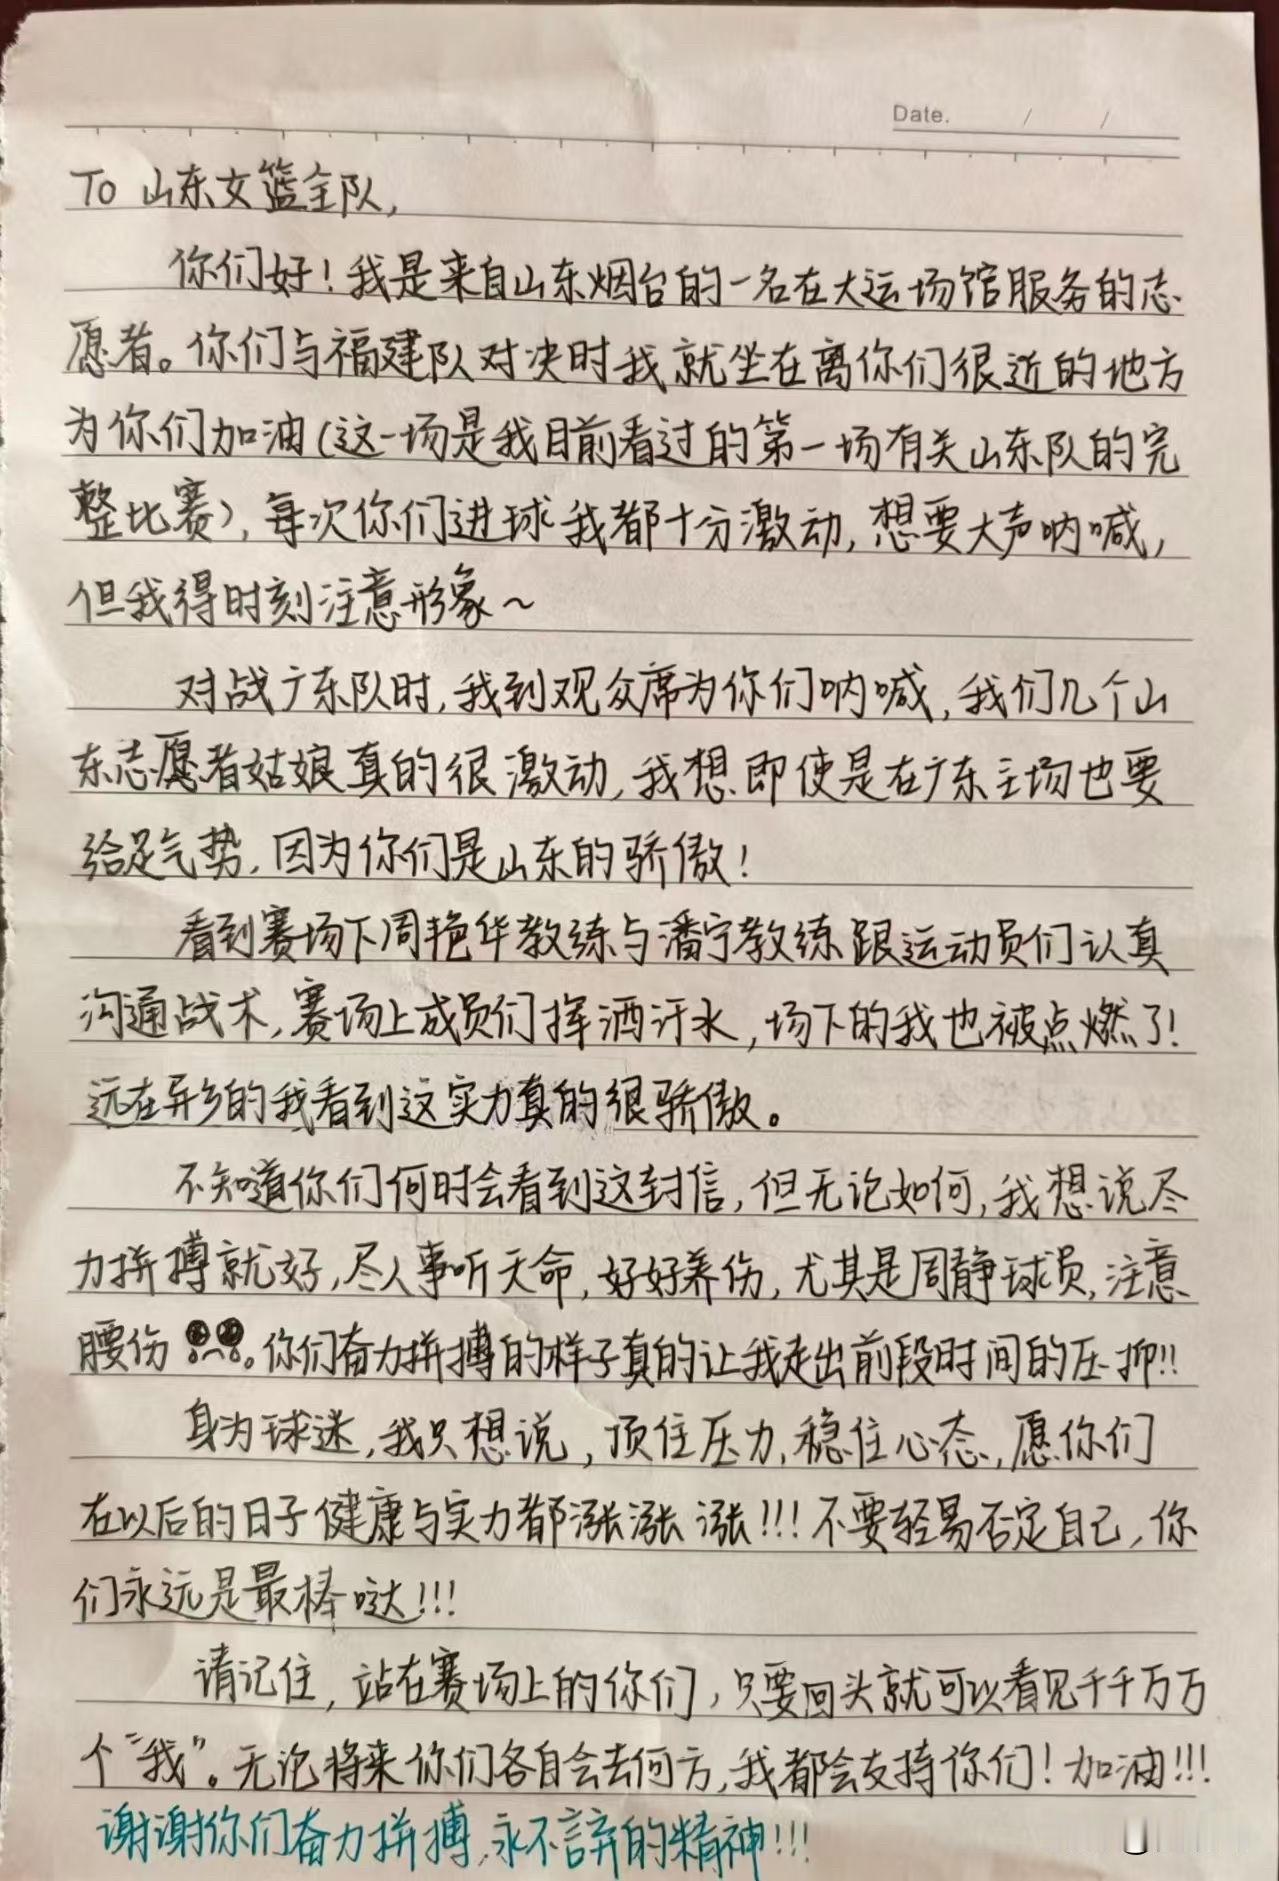 Date. / /
To 山东女篮全队,
你们好！我是来自山东烟台的一名在大运场馆服务的志
愿者。你们与福建队对决时我就坐在离你们很近的地方
为你们加油(这一场是我目前看过的第一场有关山东队的完
整比赛)，每次你们进球我都十分激动,想要大声呐喊，
但我得时刻注意形象~
对战广东队时,我到观众席为你们呐喊,我们几个山
东志愿者姑娘真的很激动,我想即使是在广东主场也要
给足气势,因为你们是山东的骄傲!
看到赛场下周艳华教练与潘宁教练跟运动员们认真
沟通战术,赛场上成员们挥洒汗水,场下的我也被点燃了!
远在异乡的我看到这实力真的很骄傲。
不知道你们何时会看到这封信,但无论如何,我想说尽
力拼搏就好,尽人事听天命,好好养伤,尤其是周静球员,注意
腰伤。你们奋力拼搏的样子真的让我走出前段时间的压抑!!
身为球迷,我只想说,顶住压力,稳住心态,愿你们
在以后的日子健康与实力都涨涨涨!!!不要轻易否定自己,你
们永远是最棒哒!!!
请记住,站在赛场上的你们,只要回头就可以看见千千万万
个“我”。无论将来你们各自会去何方,我都会支持你们!加油!!!
谢谢你们奋力拼搏,永不言弃的精神!!!